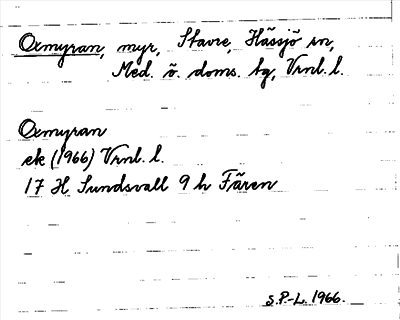 Oxmyran, myr, Stavre, Hässjö sn,
Med. ö. doms. tg, Vrnl. l.
Oxmyran
ek (1966) Vrnl. l.
17 H Sundsvall 9 h Fären
S.P-L. 1966.